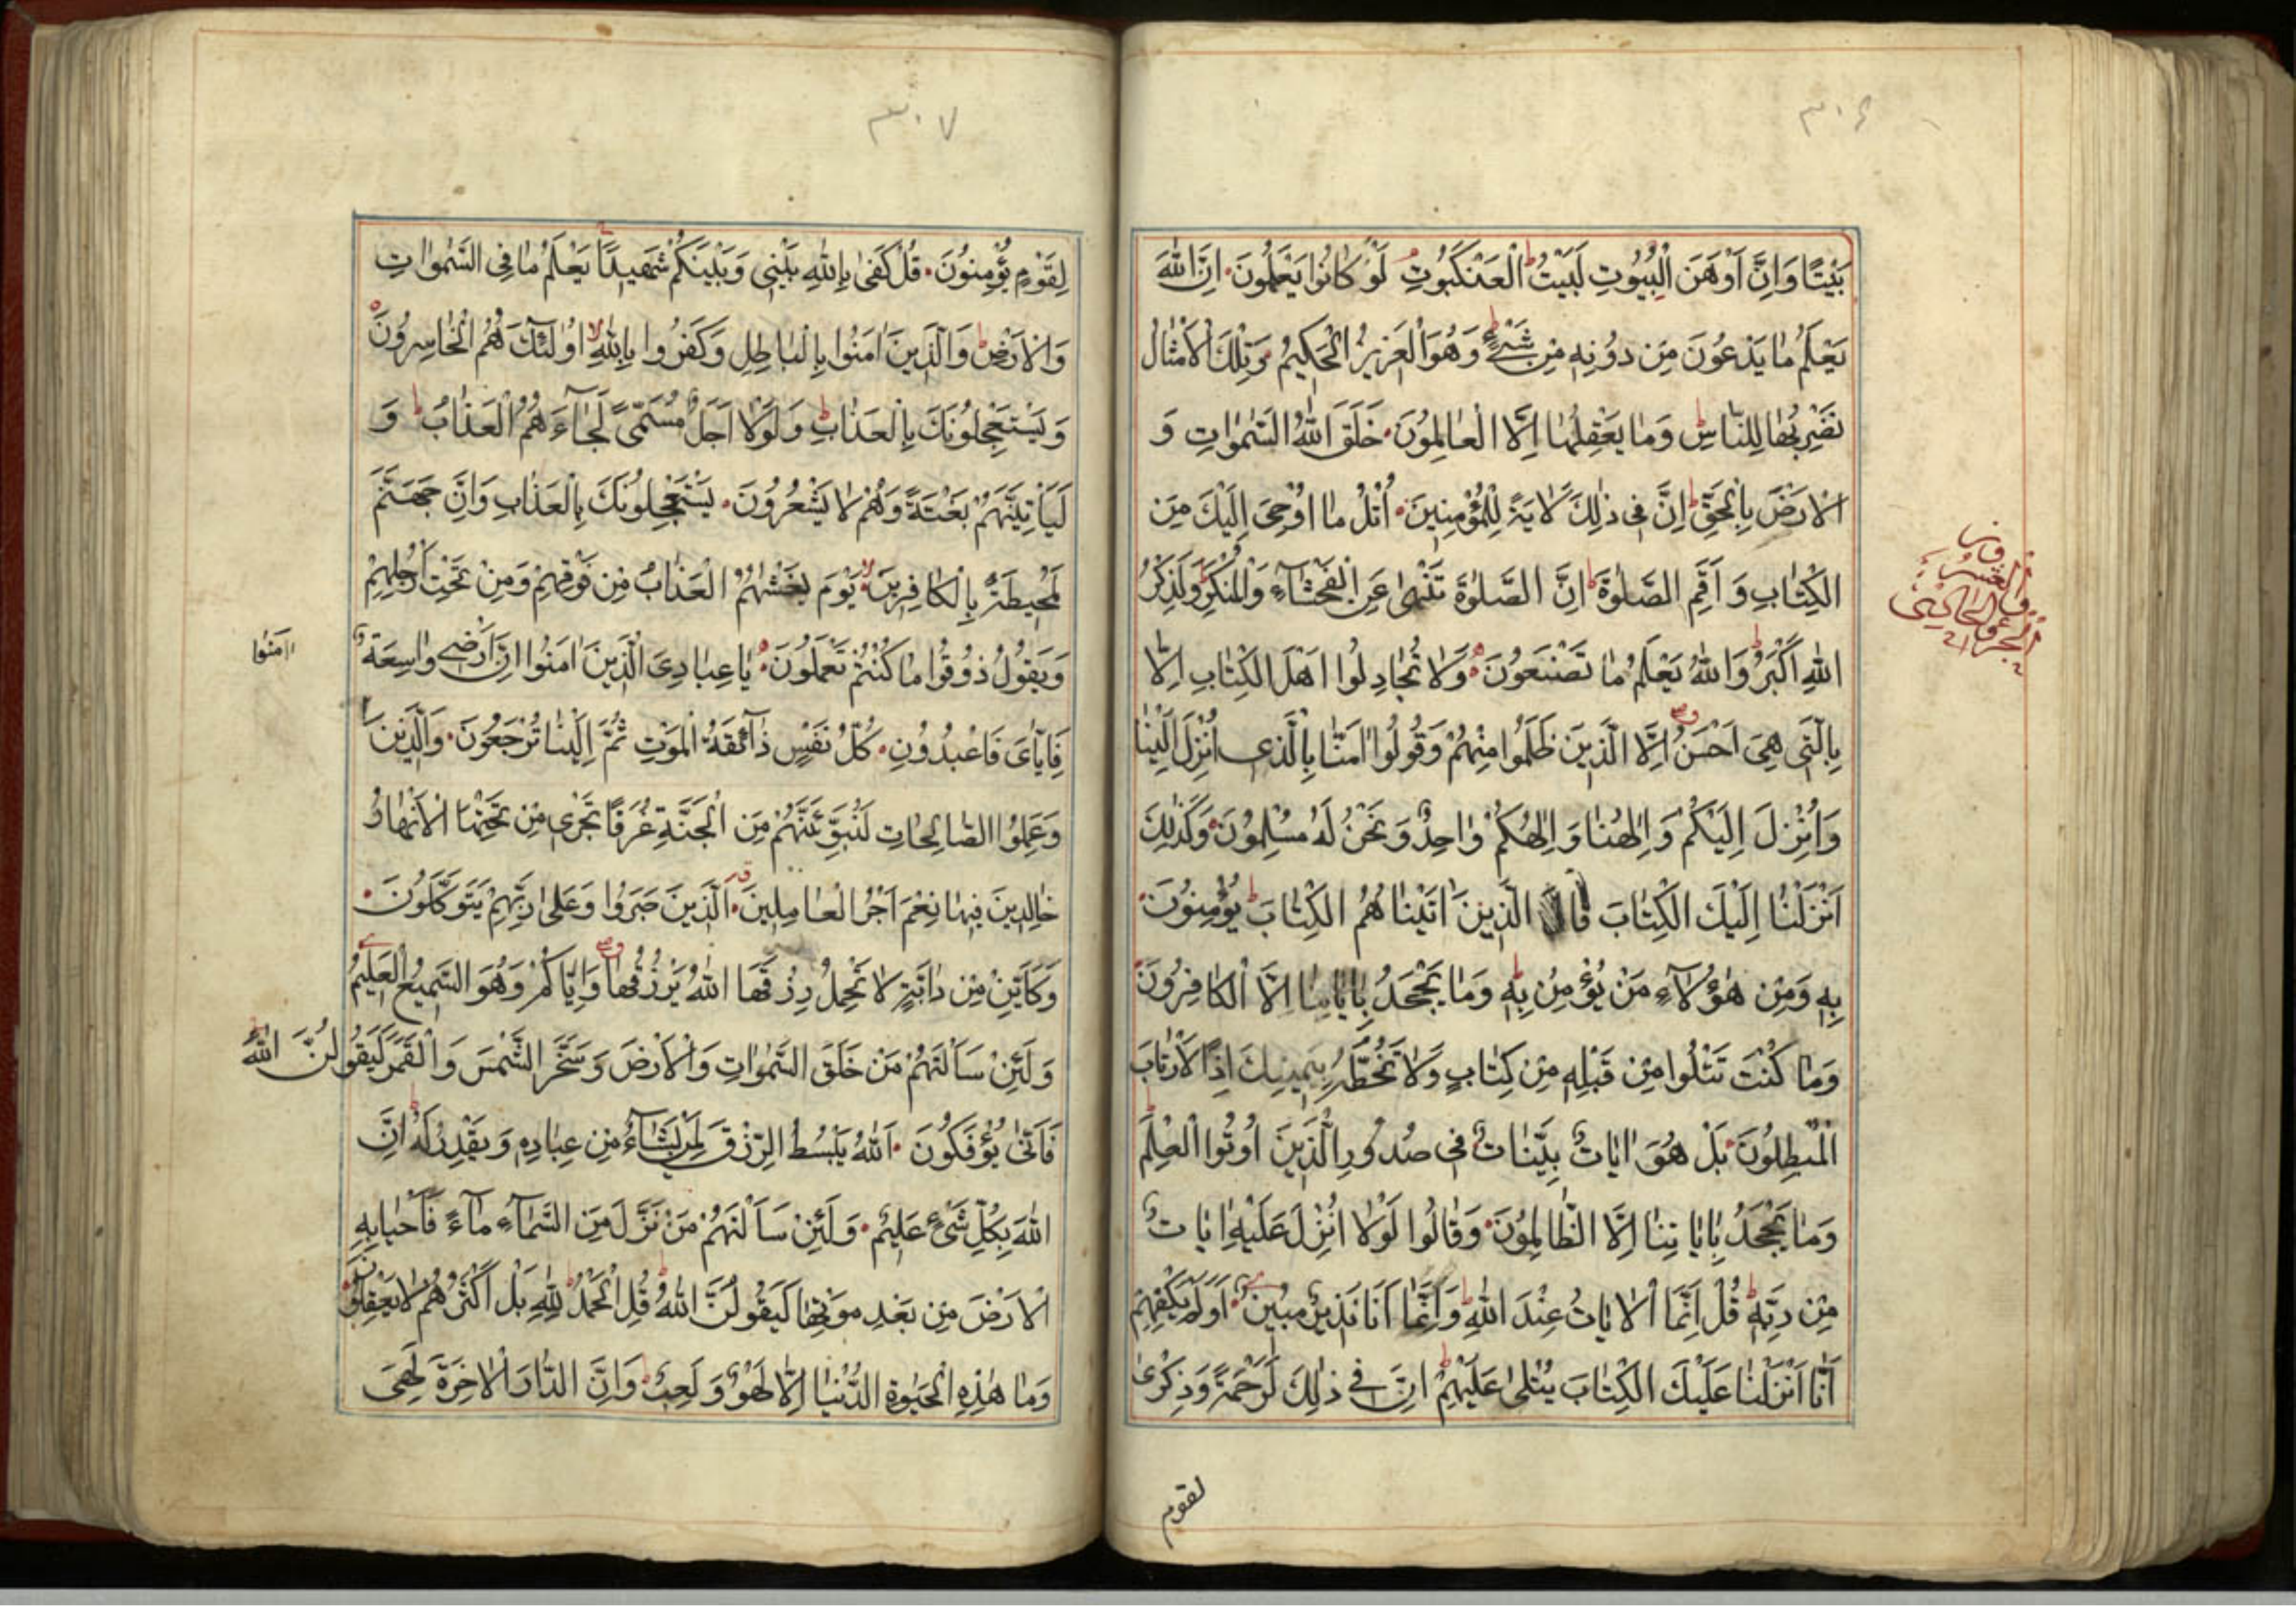 ٣٠٦
بَيْتًا وَاِنَّ اَوْهَنَ الْبُيُوتِ لَبَيْتُ الْعَنْكَبُوتِ لَوْ كَانُوا يَعْلَمُونَ اِنَّ اللّٰهَ
يَعْلَمُ مَا يَدْعُونَ مِنْ دُونِهِ مِنْ شَيْءٍ وَهُوَ الْعَزِيزُ الْحَكِيمُ وَتِلْكَ الْاَمْثَالُ
نَضْرِبُهَا لِلنَّاسِ وَمَا يَعْقِلُهَا اِلَّا الْعَالِمُونَ خَلَقَ اللّٰهُ السَّمٰوَاتِ وَ
الْاَرْضَ بِالْحَقِّ اِنَّ فِي ذٰلِكَ لَاٰيَةً لِلْمُؤْمِنِينَ اُتْلُ مَا اُوْحِيَ اِلَيْكَ مِنَ
الْكِتَابِ وَ اَقِمِ الصَّلٰوةَ اِنَّ الصَّلٰوةَ تَنْهٰى عَنِ الْفَحْشَآءِ وَالْمُنْكَرِ وَلَذِكْرُ
اللّٰهِ اَكْبَرُ وَاللّٰهُ يَعْلَمُ مَا تَصْنَعُونَ وَلَا تُجَادِلُوا اَهْلَ الْكِتَابِ اِلَّا
بِالَّتِي هِيَ اَحْسَنُ اِلَّا الَّذِينَ ظَلَمُوا مِنْهُمْ وَقُولُوا اٰمَنَّا بِالَّذِي اُنْزِلَ اِلَيْنَا
وَاُنْزِلَ اِلَيْكُمْ وَاِلٰهُنَا وَاِلٰهُكُمْ وَاحِدٌ وَنَحْنُ لَهُ مُسْلِمُونَ وَكَذٰلِكَ
اَنْزَلْنَا اِلَيْكَ الْكِتَابَ فَالَّذِينَ اٰتَيْنَاهُمُ الْكِتَابَ يُؤْمِنُونَ
بِهِ وَمِنْ هٰؤُلَآءِ مَنْ يُؤْمِنُ بِهِ وَمَا يَجْحَدُ بِاٰيَاتِنَا اِلَّا الْكَافِرُونَ
وَمَا كُنْتَ تَتْلُوا مِنْ قَبْلِهِ مِنْ كِتَابٍ وَلَا تَخُطُّهُ بِيَمِينِكَ اِذًا لَارْتَابَ
الْمُبْطِلُونَ بَلْ هُوَ اٰيَاتٌ بَيِّنَاتٌ فِي صُدُورِ الَّذِينَ اُوتُوا الْعِلْمَ
وَمَا يَجْحَدُ بِاٰيَاتِنَا اِلَّا الظَّالِمُونَ وَقَالُوا لَوْلَا اُنْزِلَ عَلَيْهِ اٰيَاتٌ
مِنْ رَبِّهِ قُلْ اِنَّمَا الْاٰيَاتُ عِنْدَ اللّٰهِ وَاِنَّمَا اَنَا نَذِيرٌ مُبِينٌ اَوَلَمْ يَكْفِهِمْ
اَنَّا اَنْزَلْنَا عَلَيْكَ الْكِتَابَ يُتْلٰى عَلَيْهِمْ اِنَّ فِي ذٰلِكَ لَرَحْمَةً وَذِكْرٰى
لقوم
٣٠٧
لِقَوْمٍ يُؤْمِنُونَ قُلْ كَفٰى بِاللّٰهِ بَيْنِي وَبَيْنَكُمْ شَهِيدًا يَعْلَمُ مَا فِي السَّمٰوَاتِ
وَالْاَرْضِ وَالَّذِينَ اٰمَنُوا بِالْبَاطِلِ وَكَفَرُوا بِاللّٰهِ اُولٰئِكَ هُمُ الْخَاسِرُونَ
وَيَسْتَعْجِلُونَكَ بِالْعَذَابِ وَلَوْلَا اَجَلٌ مُسَمًّى لَجَآءَهُمُ الْعَذَابُ وَ
لَيَأْتِيَنَّهُمْ بَغْتَةً وَهُمْ لَا يَشْعُرُونَ يَسْتَعْجِلُونَكَ بِالْعَذَابِ وَاِنَّ جَهَنَّمَ
لَمُحِيطَةٌ بِالْكَافِرِينَ يَوْمَ يَغْشٰهُمُ الْعَذَابُ مِنْ فَوْقِهِمْ وَمِنْ تَحْتِ اَرْجُلِهِمْ
وَيَقُولُ ذُوقُوا مَا كُنْتُمْ تَعْمَلُونَ يَا عِبَادِيَ الَّذِينَ اٰمَنُوا اِنَّ اَرْضِي وَاسِعَةٌ
فَاِيَّايَ فَاعْبُدُونِ كُلُّ نَفْسٍ ذَآئِقَةُ الْمَوْتِ ثُمَّ اِلَيْنَا تُرْجَعُونَ وَالَّذِينَ
اٰمَنُوا
وَعَمِلُوا الصَّالِحَاتِ لَنُبَوِّئَنَّهُمْ مِنَ الْجَنَّةِ غُرَفًا تَجْرِي مِنْ تَحْتِهَا الْاَنْهَارُ
خَالِدِينَ فِيهَا نِعْمَ اَجْرُ الْعَامِلِينَ اَلَّذِينَ صَبَرُوا وَعَلٰى رَبِّهِمْ يَتَوَكَّلُونَ
وَكَاَيِّنْ مِنْ دَابَّةٍ لَا تَحْمِلُ رِزْقَهَا اللّٰهُ يَرْزُقُهَا وَاِيَّاكُمْ وَهُوَ السَّمِيعُ الْعَلِيمُ
وَلَئِنْ سَاَلْتَهُمْ مَنْ خَلَقَ السَّمٰوَاتِ وَالْاَرْضَ وَسَخَّرَ الشَّمْسَ وَالْقَمَرَ لَيَقُولُنَّ اللّٰهُ
فَاَنّٰى يُؤْفَكُونَ اَللّٰهُ يَبْسُطُ الرِّزْقَ لِمَنْ يَشَآءُ مِنْ عِبَادِهِ وَيَقْدِرُ لَهُ اِنَّ
اللّٰهَ بِكُلِّ شَيْءٍ عَلِيمٌ وَلَئِنْ سَاَلْتَهُمْ مَنْ نَزَّلَ مِنَ السَّمَآءِ مَآءً فَاَحْيَا بِهِ
الْاَرْضَ مِنْ بَعْدِ مَوْتِهَا لَيَقُولُنَّ اللّٰهُ قُلِ الْحَمْدُ لِلّٰهِ بَلْ اَكْثَرُهُمْ لَا يَعْقِلُونَ
وَمَا هٰذِهِ الْحَيٰوةُ الدُّنْيَا اِلَّا لَهْوٌ وَلَعِبٌ وَاِنَّ الدَّارَ الْاٰخِرَةَ لَهِيَ